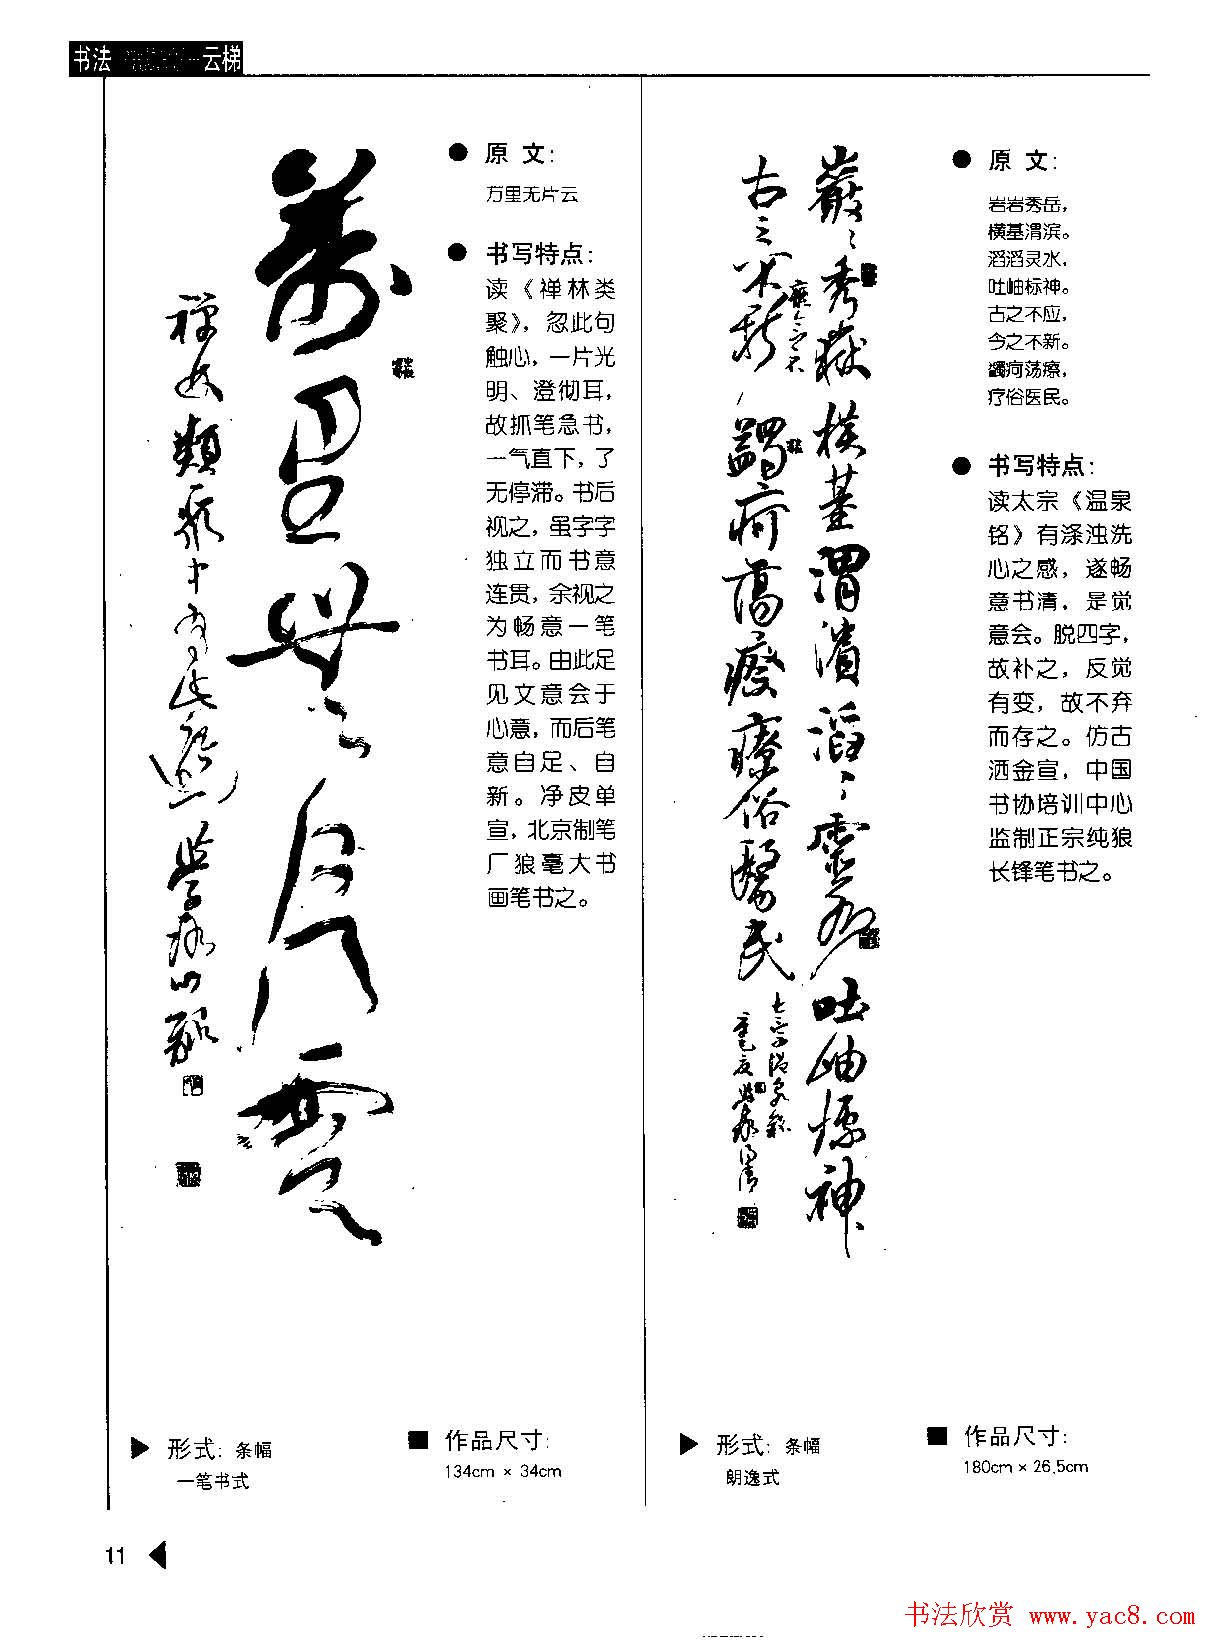 书法
云梯
萬里無片雲
禅林類聚中有此語
● 原 文：
万里无片云
● 书写特点：
读《禅林类
聚》，忽此句
触心，一片光
明、澄彻耳，
故抓笔急书，
一气直下，了
无停滞。书后
视之，虽字字
独立而书意
连贯，余视之
为畅意一笔
书耳。由此足
见文意会于
心意，而后笔
意自足、自
新。净皮单
宣，北京制笔
厂狼毫大书
画笔书之。
▶ 形式：条幅
一笔书式
■ 作品尺寸：
134cm × 34cm
巖〻秀嶽横基渭濱滔〻靈水吐岫標神
古之不新
蠲痾蕩瘵療俗醫民
● 原 文：
岩岩秀岳，
横基渭滨。
滔滔灵水，
吐岫标神。
古之不应，
今之不新。
蠲疴荡瘵，
疗俗医民。
● 书写特点：
读太宗《温泉
铭》有涤浊洗
心之感，遂畅
意书清，是觉
意会。脱四字，
故补之，反觉
有变，故不弃
而存之。仿古
洒金宣，中国
书协培训中心
监制正宗纯狼
长锋笔书之。
▶ 形式：条幅
朗逸式
■ 作品尺寸：
180cm × 26.5cm
11 ◀
书法欣赏 www.yac8.com